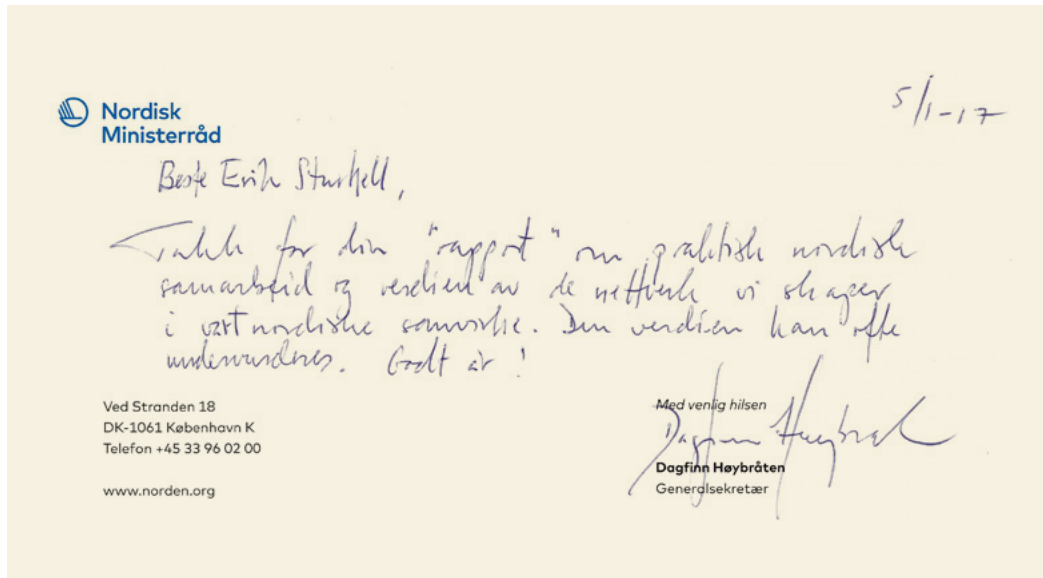 5/1-17
Nordisk
Ministerråd
Beste Erik Sturkell,
Takk for din "rapport" om praktisk nordisk
samarbeid og verdien av de nettverk vi skaper
i vårt nordiske samvirke. Den verdien kan ofte
undervurderes. Godt år!
Ved Stranden 18
DK-1061 København K
Telefon +45 33 96 02 00
www.norden.org
Med venlig hilsen
Dagfinn Høybråten
Dagfinn Høybråten
Generalsekretær